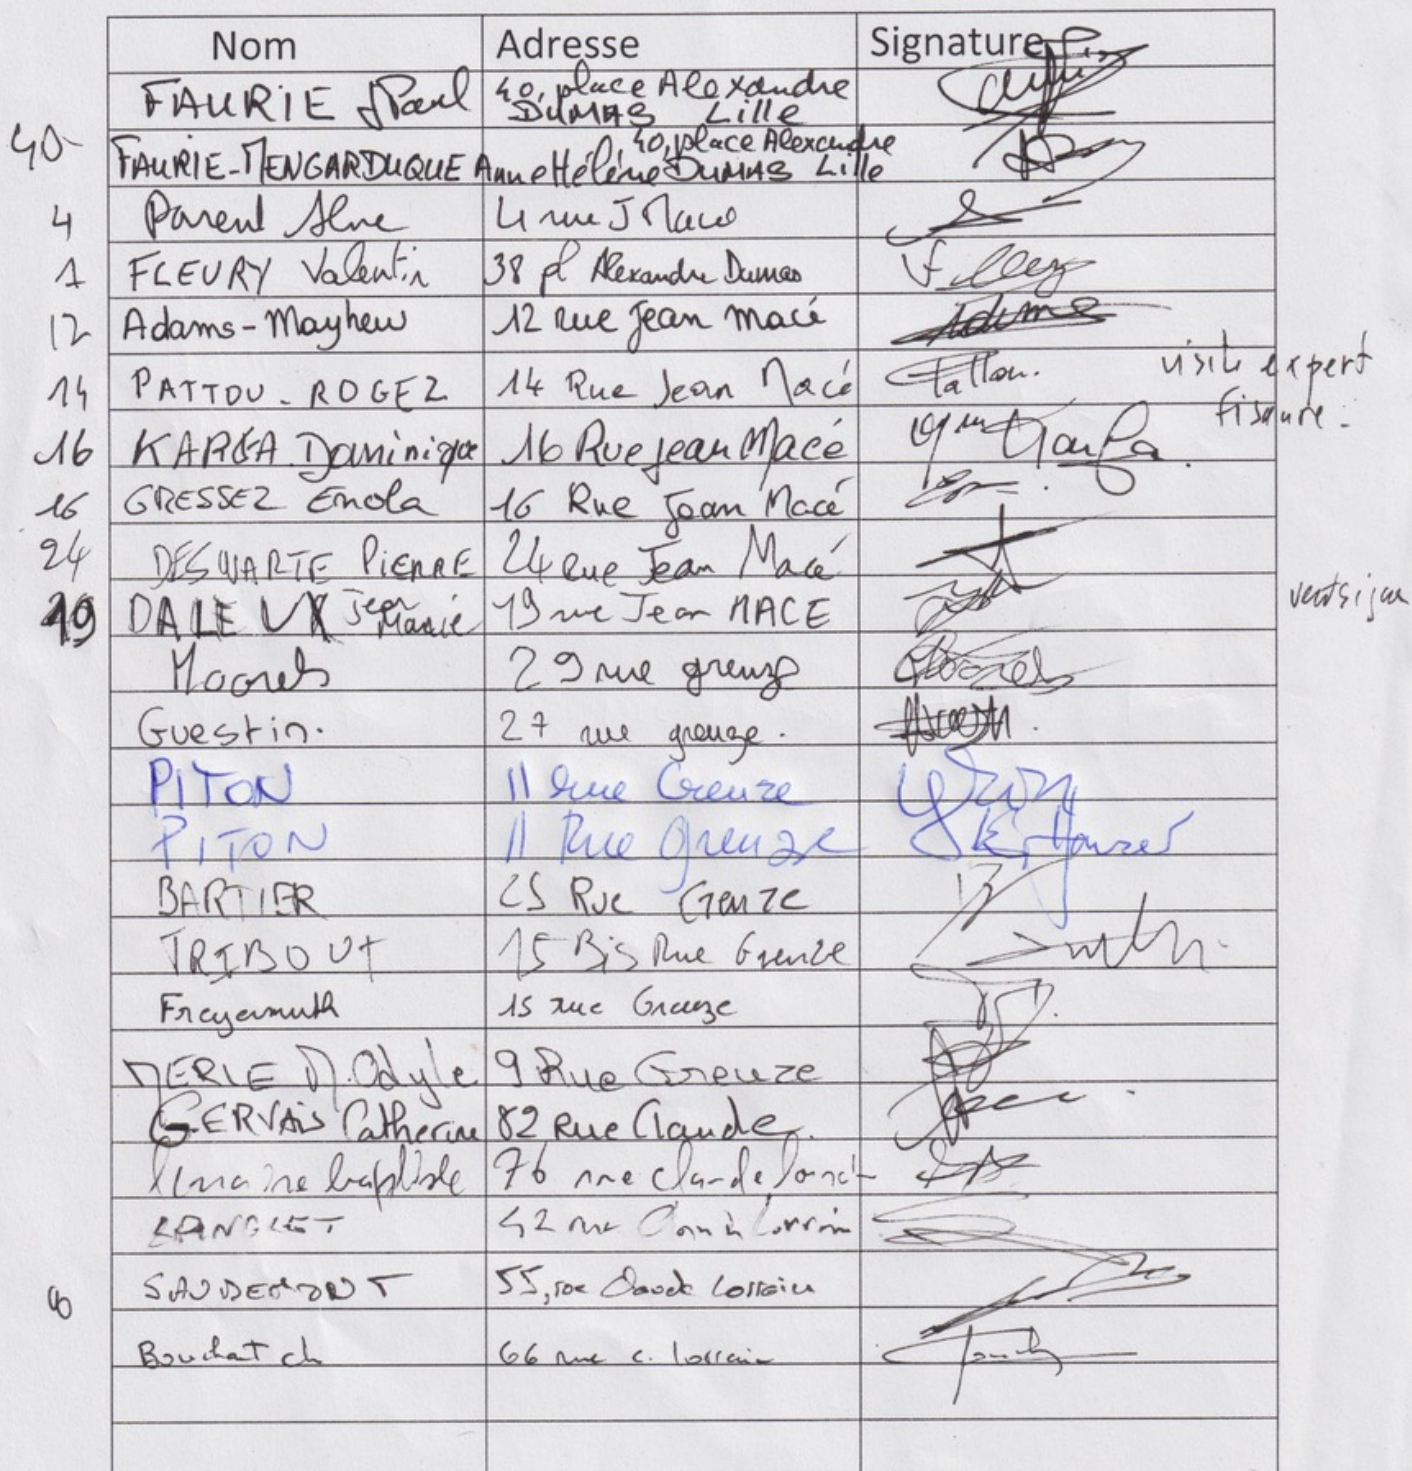 Nom Adresse Signature
FAURIE JPaul 40, place Alexandre
DUMAS Lille
40 FAURIE-MENGARDUQUE Anne Hélène 40, place Alexandre
DUMAS Lille
4 Parent Aline 4 rue J Macé
1 FLEURY Valentin 38 pl Alexandre Dumas
12 Adams-Mayhew 12 rue Jean Macé
14 PATTOU-ROGEZ 14 Rue Jean Macé visite expert
fissure.
16 Dominique 16 Rue Jean Macé
16 GRESSEZ Enola 16 Rue Jean Macé
24 DESWARTE PIERRE 24 Rue Jean Macé
19 DALEUX Jean
Marie 19 rue Jean MACE
29 rue greuze
Guestin. 27 rue greuze.
PITON 11 Rue Greuze
PITON 11 Rue Greuze
BARTIER 25 Rue Greuze
TRIBOUT 15 Bis Rue Greuze
Freyermuth 15 rue Greuze
MERLE M.Odyle 9 Rue Greuze
GERVAIS Catherine 82 Rue Claude
baptiste 76 rue claude
LANGLET 42 rue Lorrain
SAUDEMONT 55, rue Claude Lorrain
Bouchat ch 66 rue c. lorrain